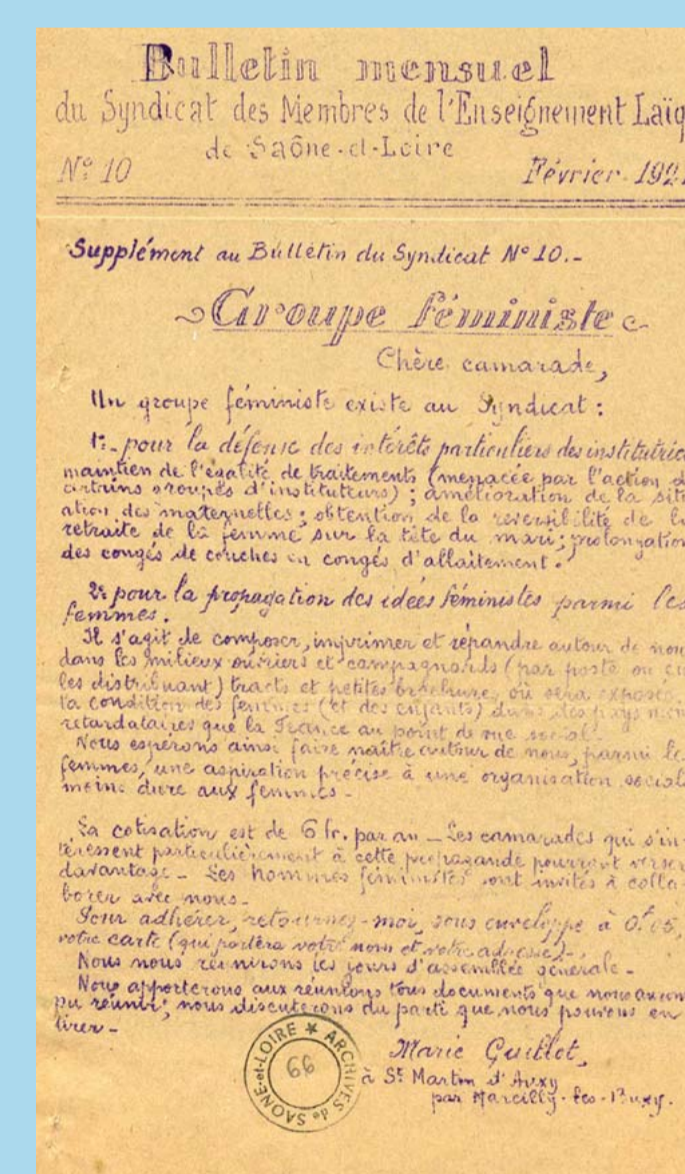 Bulletin mensuel
du Syndicat des Membres de l'Enseignement Laïq
de Saône-et-Loire
N° 10 Février 192
Supplément au Bulletin du Syndicat N° 10.-
Groupe féministe
Chère camarade,
Un groupe féministe existe au Syndicat :
1°- pour la défense des intérêts particuliers des institutrices
maintien de l'égalité de traitements (menacée par l'action d
certains groupes d'instituteurs) ; amélioration de la situ
ation des maternelles ; obtention de la reversibilité de la
retraite de la femme sur la tête du mari ; prolongation
des congés de couches en congés d'allaitement.
2° pour la propagation des idées féministes parmi les
femmes.
Il s'agit de composer, imprimer et répandre autour de nous
dans les milieux ouvriers et campagnards (par poste ou en
les distribuant) tracts et petites brochures où sera exposée
la condition des femmes (et des enfants) dans des pays moins
retardataires que la France au point de vue social.
Nous espérons ainsi faire naître autour de nous, parmi les
femmes, une aspiration précise à une organisation sociale
moins dure aux femmes -
La cotisation est de 6 fr. par an - Les camarades qui s'in-
téressent particulièrement à cette propagande pourront verser
davantage - Les hommes féministes sont invités à colla-
borer avec nous -
Pour adhérer, retournez-moi, sous enveloppe à 0f05,
votre carte (qui portera votre nom et votre adresse) -
Nous nous réunirons les jours d'assemblée générale -
Nous apporterons aux réunions tous documents que nous aurons
pu réunir ; nous discuterons du parti que nous pouvons en
tirer -
Marie Guillot,
à St Martin d'Auxy
par Marcilly-les-Buxy.
ARCHIVES de SAONE-et-LOIRE
66